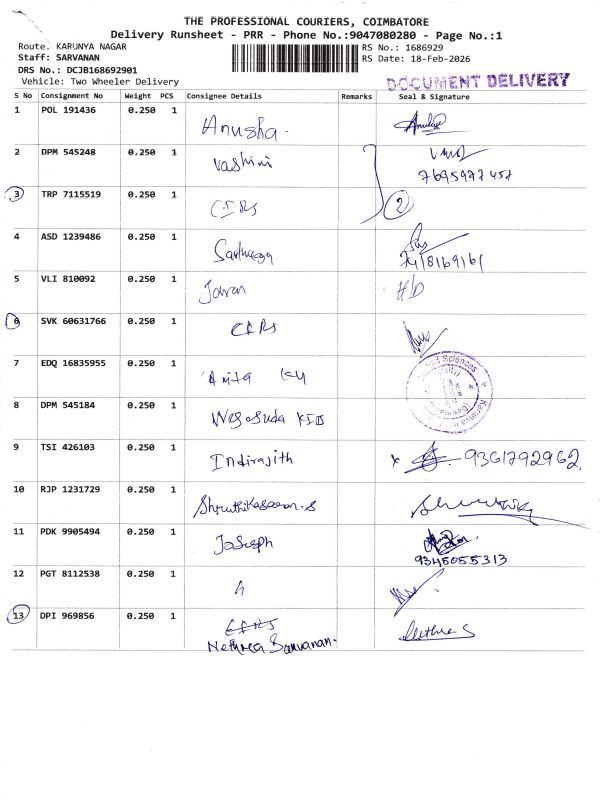 THE PROFESSIONAL COURIERS, COIMBATORE
Delivery Runsheet - PRR - Phone No.:9047080280 - Page No.:1
Route. KARUNYA NAGAR
Staff: SARVANAN
DRS No.: DCJB168692901
Vehicle: Two Wheeler Delivery
RS No.: 1686929
RS Date: 18-Feb-2026
DOCUMENT DELIVERY
S No Consignment No Weight PCS Consignee Details Remarks Seal & Signature
1 POL 191436 0.250 1 Anusha.
2 DPM 545248 0.250 1 Vashini 7695977457
3 TRP 7115519 0.250 1 2
4 ASD 1239486 0.250 1
5 VLI 810092 0.250 1 H/D
6 SVK 60631766 0.250 1
7 EDQ 16835955 0.250 1 Anita
8 DPM 545184 0.250 1
9 TSI 426103 0.250 1 Indirajith x 9361792962
10 RJP 1231729 0.250 1
11 PDK 9905494 0.250 1 Joseph 9345055313
12 PGT 8112538 0.250 1
13 DPI 969856 0.250 1